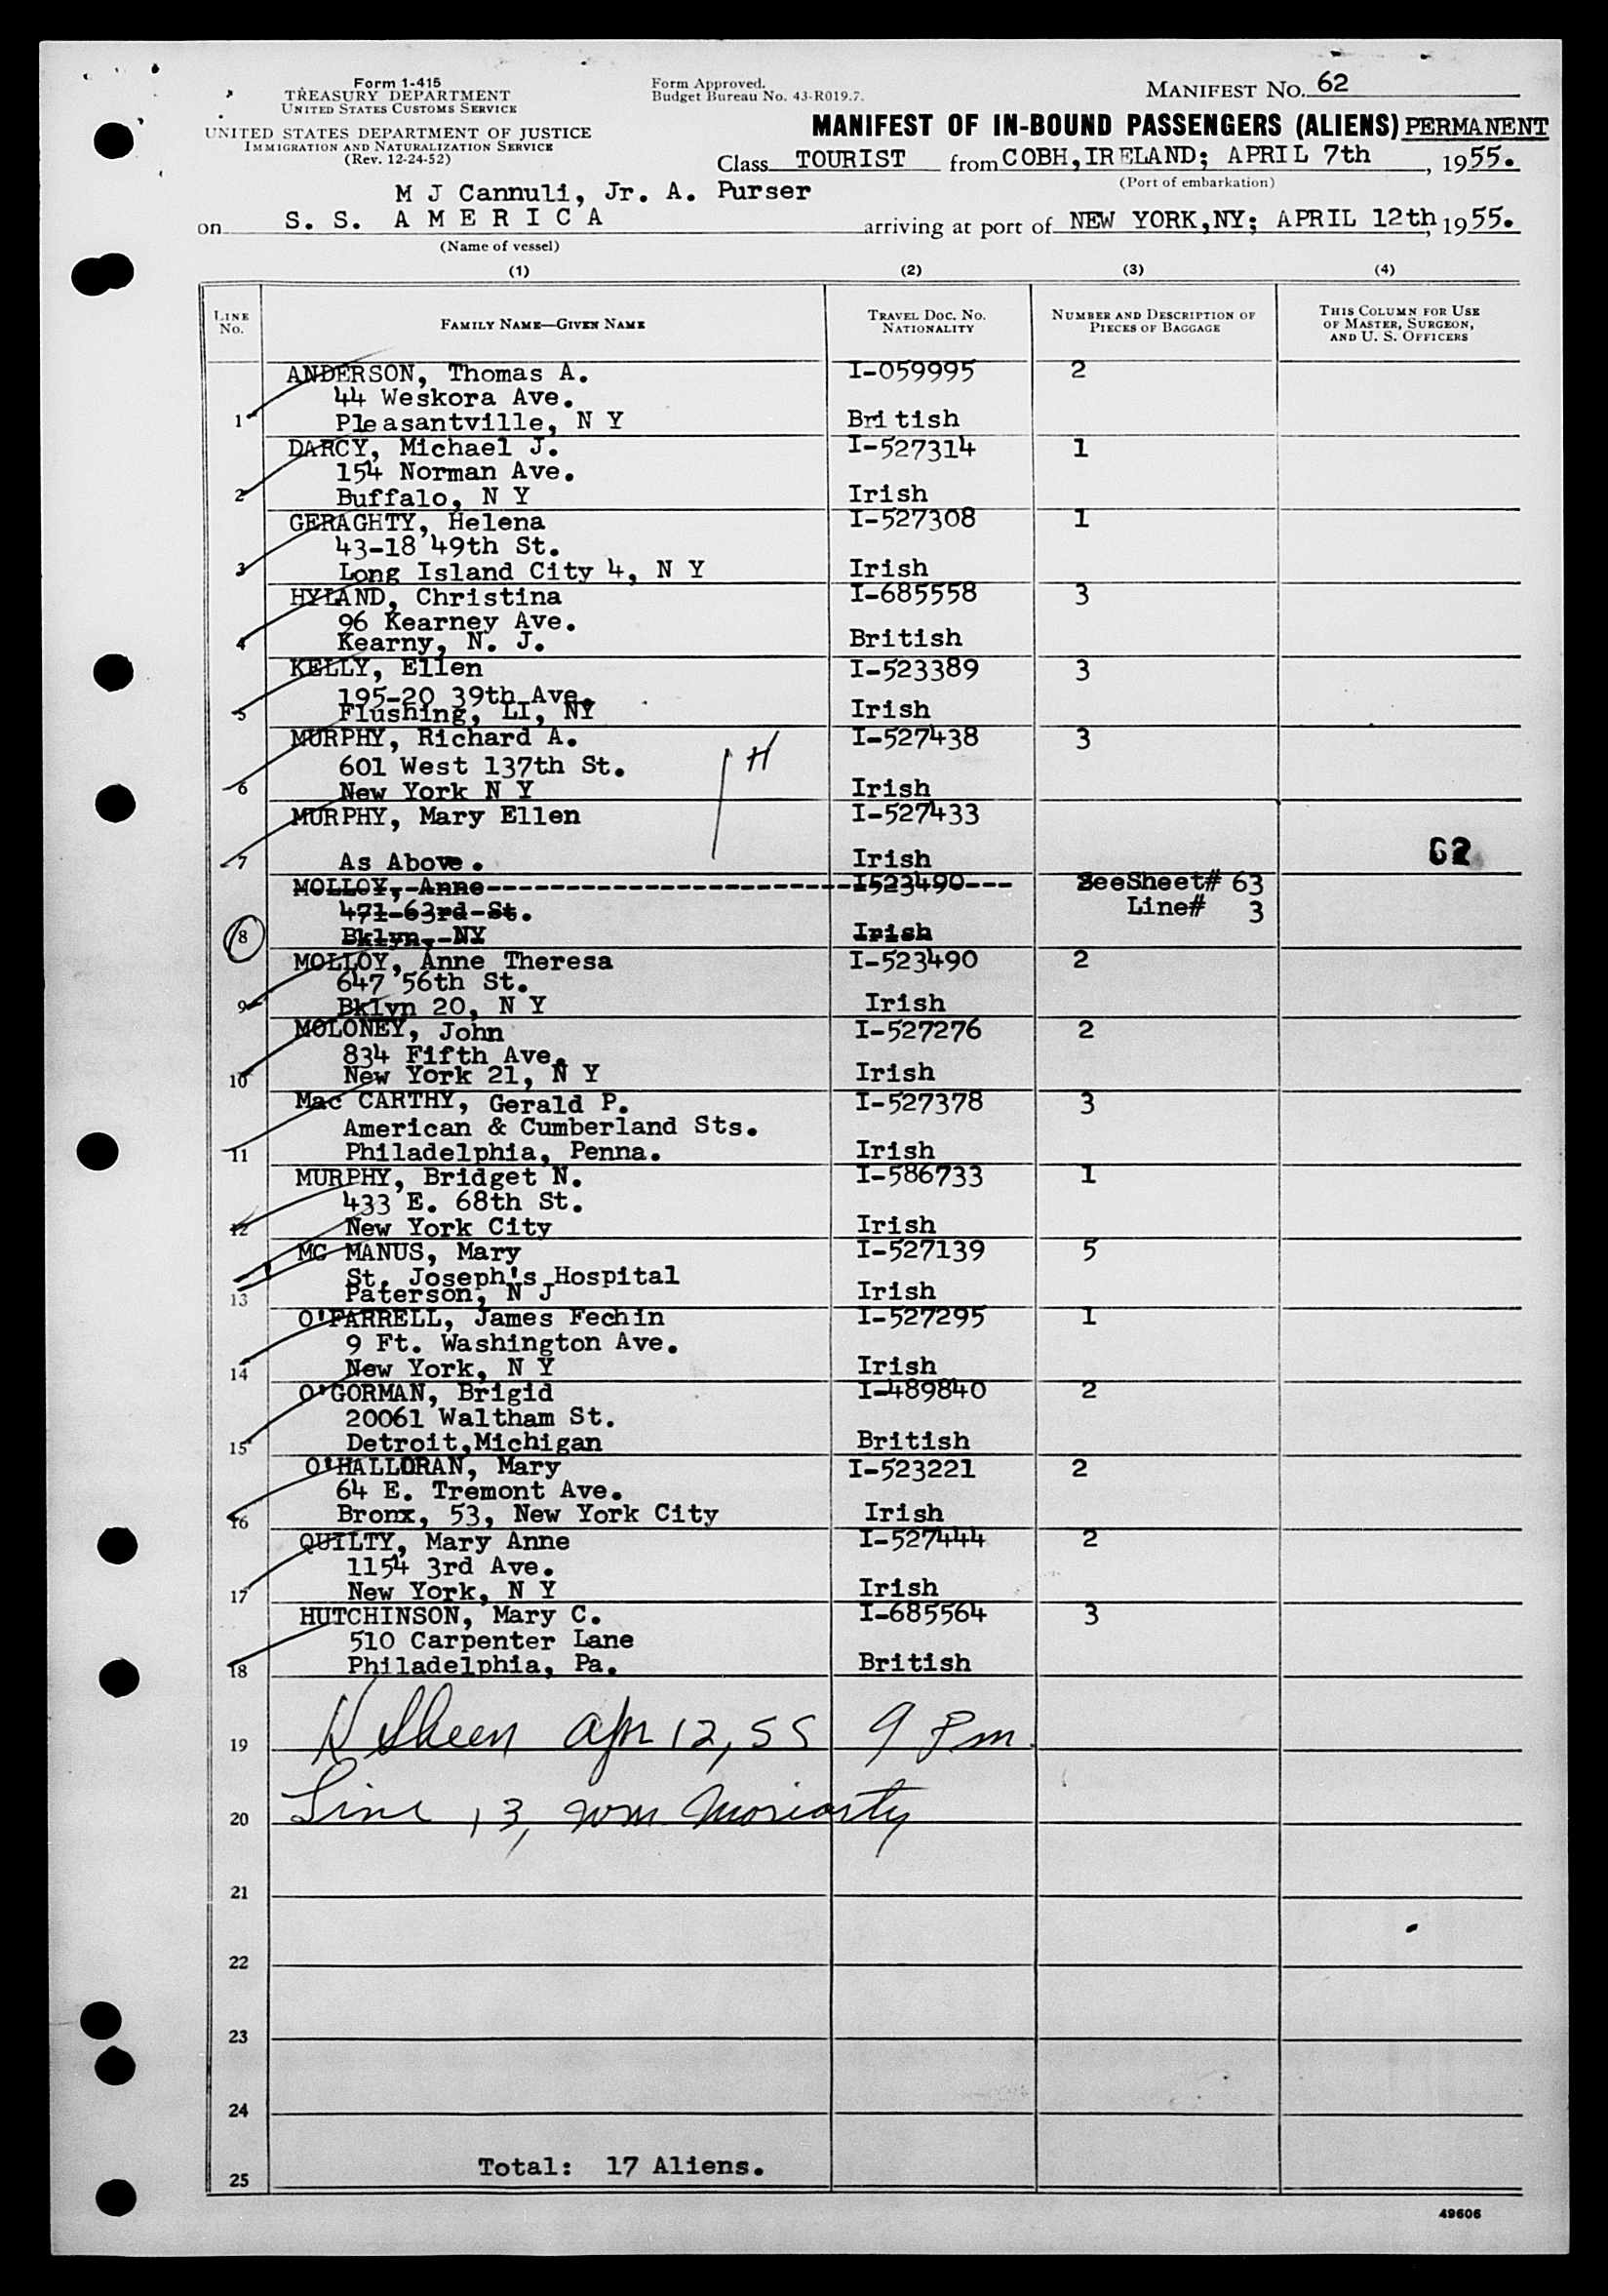 Form 1-415
TREASURY DEPARTMENT
UNITED STATES CUSTOMS SERVICE
UNITED STATES DEPARTMENT OF JUSTICE
IMMIGRATION AND NATURALIZATION SERVICE
(Rev. 12-24-52)
Form Approved.
Budget Bureau No. 43-R019.7.
MANIFEST NO. 62
MANIFEST OF IN-BOUND PASSENGERS (ALIENS) PERMANENT
Class TOURIST from COBH, IRELAND; APRIL 7th, 1955.
(Port of embarkation)
M J Cannuli, Jr. A. Purser
on S. S. A M E R I C A arriving at port of NEW YORK, NY; APRIL 12th, 1955.
(Name of vessel)
(1) (2) (3) (4)
LINE NO. FAMILY NAME—GIVEN NAME TRAVEL DOC. NO. NATIONALITY NUMBER AND DESCRIPTION OF PIECES OF BAGGAGE THIS COLUMN FOR USE OF MASTER, SURGEON, AND U. S. OFFICERS
ANDERSON, Thomas A. I-059995 2
44 Weskora Ave.
1 Pleasantville, N Y British
DARCY, Michael J. I-527314 1
154 Norman Ave.
2 Buffalo, N Y Irish
GERAGHTY, Helena I-527308 1
43-18 49th St.
3 Long Island City 4, N Y Irish
HYLAND, Christina I-685558 3
96 Kearney Ave.
4 Kearny, N. J. British
KELLY, Ellen I-523389 3
195-20 39th Ave.
5 Flushing, LI, NY Irish
MURPHY, Richard A. I-527438 3
601 West 137th St. H
6 New York N Y Irish
MURPHY, Mary Ellen I-527433
7 As Above. Irish 62
MOLLOY, Anne I523490 SeeSheet# 63
471-63rd-St. Line# 3
8 Bklyn,-NY Irish
MOLLOY, Anne Theresa I-523490 2
647 56th St.
9 Bklyn 20, N Y Irish
MOLONEY, John I-527276 2
834 Fifth Ave.
10 New York 21, N Y Irish
Mac CARTHY, Gerald P. I-527378 3
American & Cumberland Sts.
11 Philadelphia, Penna. Irish
MURPHY, Bridget N. I-586733 1
433 E. 68th St.
12 New York City Irish
MC MANUS, Mary I-527139 5
St. Joseph's Hospital
13 Paterson, N J Irish
O'FARRELL, James Fechin I-527295 1
9 Ft. Washington Ave.
14 New York, N Y Irish
O'GORMAN, Brigid I-489840 2
20061 Waltham St.
15 Detroit,Michigan British
O'HALLORAN, Mary I-523221 2
64 E. Tremont Ave.
16 Bronx, 53, New York City Irish
QUILTY, Mary Anne I-527444 2
1154 3rd Ave.
17 New York, N Y Irish
HUTCHINSON, Mary C. I-685564 3
510 Carpenter Lane
18 Philadelphia, Pa. British
19 Sheen Apr 12, 55 9 Pm
20 Line 13, Wm. Moriarty
21
22
23
24
25 Total: 17 Aliens.
49606